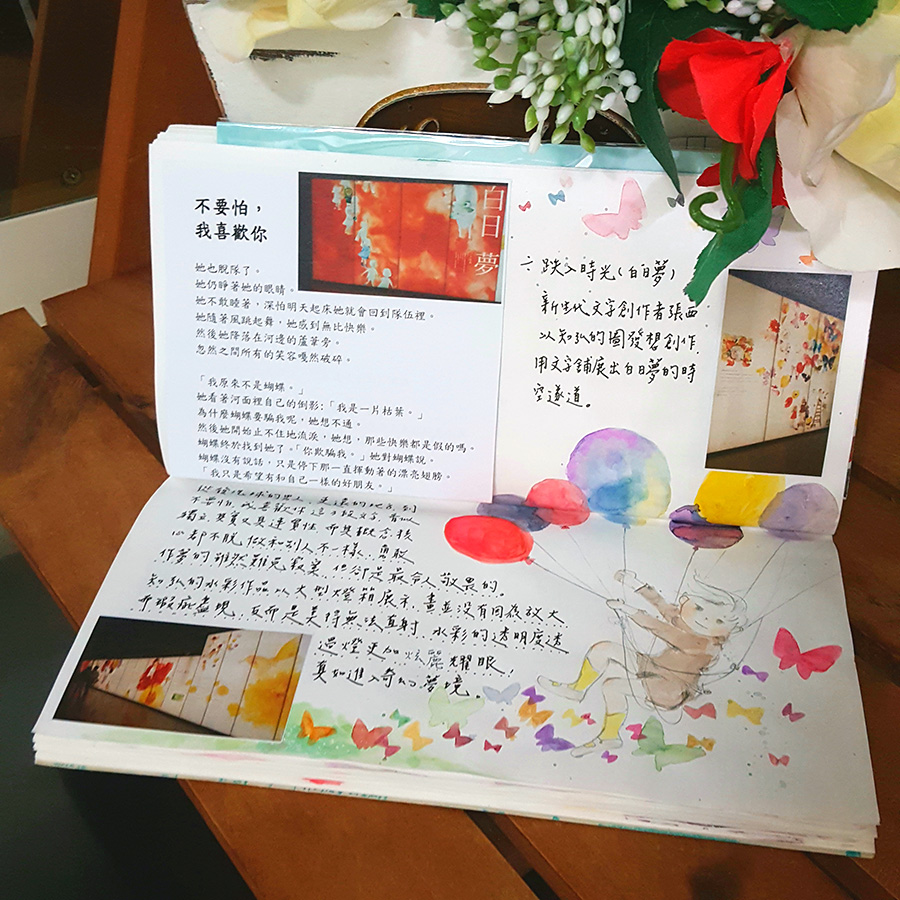 不要怕，
我喜歡你
她也脫隊了。
她仍睜著她的眼睛。
她不敢睡著，深怕明天起床她就會回到隊伍裡。
她隨著風跳起舞，她感到無比快樂。
然後她降落在河邊的蘆葦旁。
忽然之間所有的笑容嘎然破碎。
「我原來不是蝴蝶。」
她看著河面裡自己的倒影:「我是一片枯葉。」
為什麼蝴蝶要騙我呢，她想不通。
然後她開始止不住地流淚，她想，那些快樂都是假的嗎。
蝴蝶終於找到她了。「你欺騙我。」她對蝴蝶說。
蝴蝶沒有說話，只是停下那一直揮動著的漂亮翅膀。
「我只是希望有和自己一樣的好朋友。」
白日夢
六 跌入時光(白日夢)
新生代文字創作者張西
以知弘的圖發想創作,
用文字鋪展出白日夢的時
空遂道。
不要怕,我喜歡你 這 段文字, 看似
獨立, 其實又具連貫性, 而其概念核
心都不脫, 做和別人不一樣, 勇敢
作夢的雖然難免寂寞, 但卻是最令人敬畏的。
知弘的水彩作品以大型燈箱展示, 畫並沒有因為放大
而瑕疵盡現, 反而是美得無法直射, 水彩的透明度透
過燈更加炫麗耀眼,
真如進入奇幻夢境.